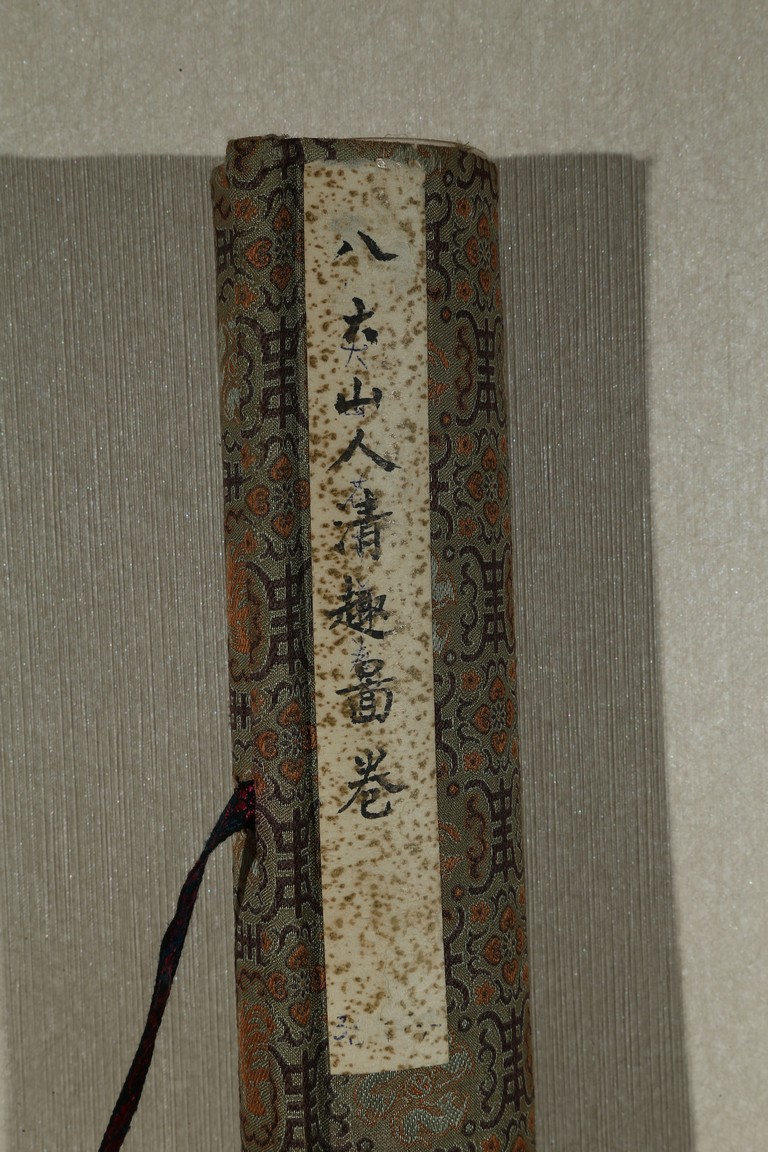 八大山人清趣啚卷